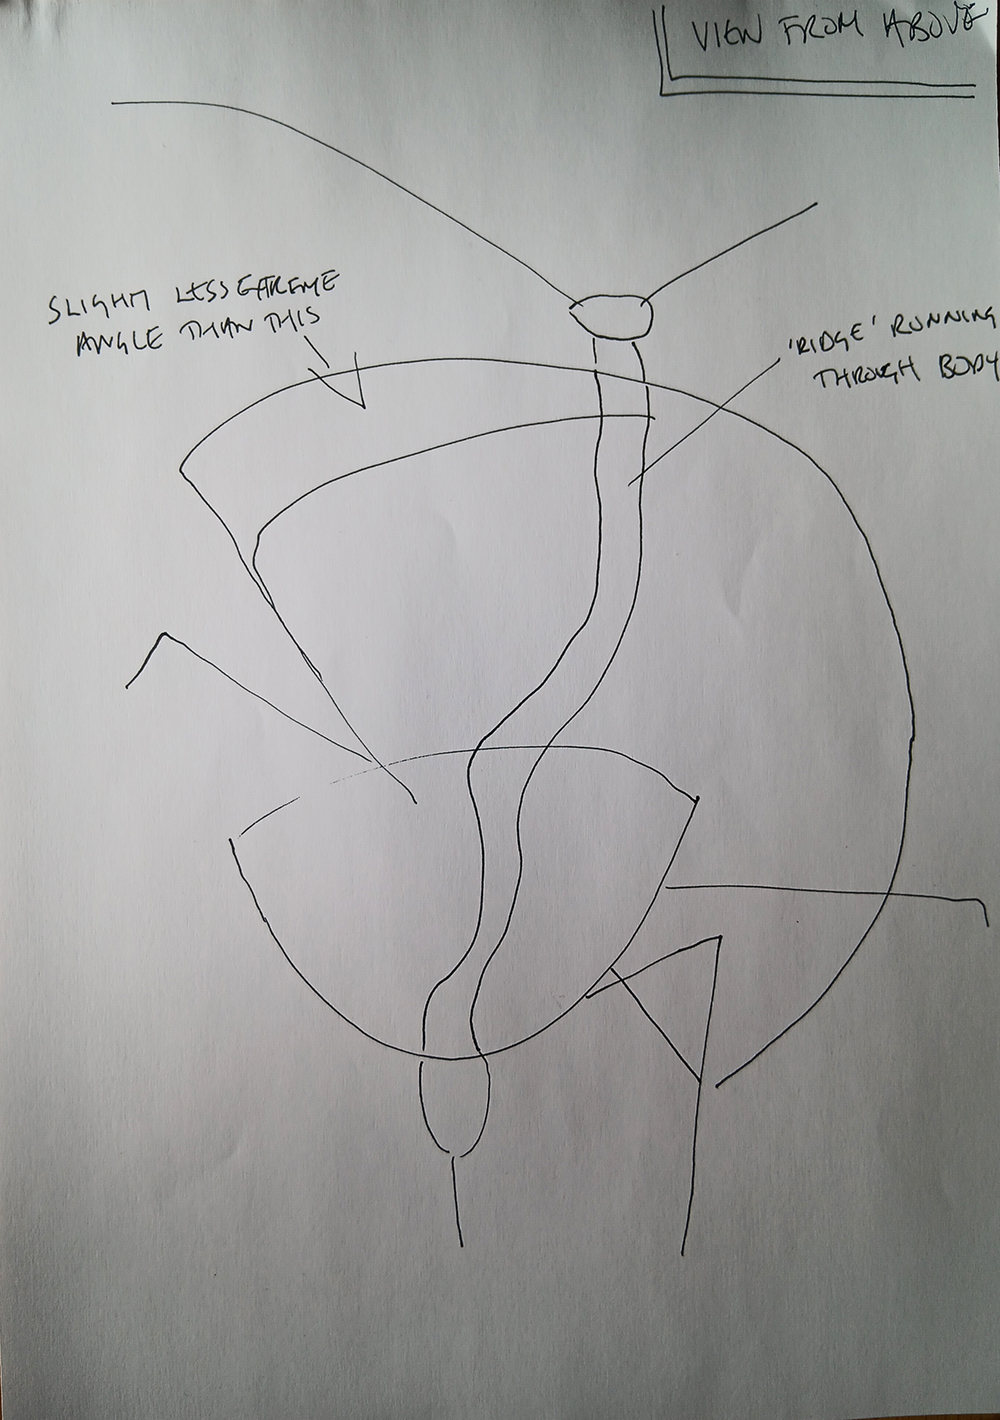 VIEW FROM ABOVE
SLIGHT LESS EXTREME
ANGLE THAN THIS
'RIDGE' RUNNING
THROUGH BODY